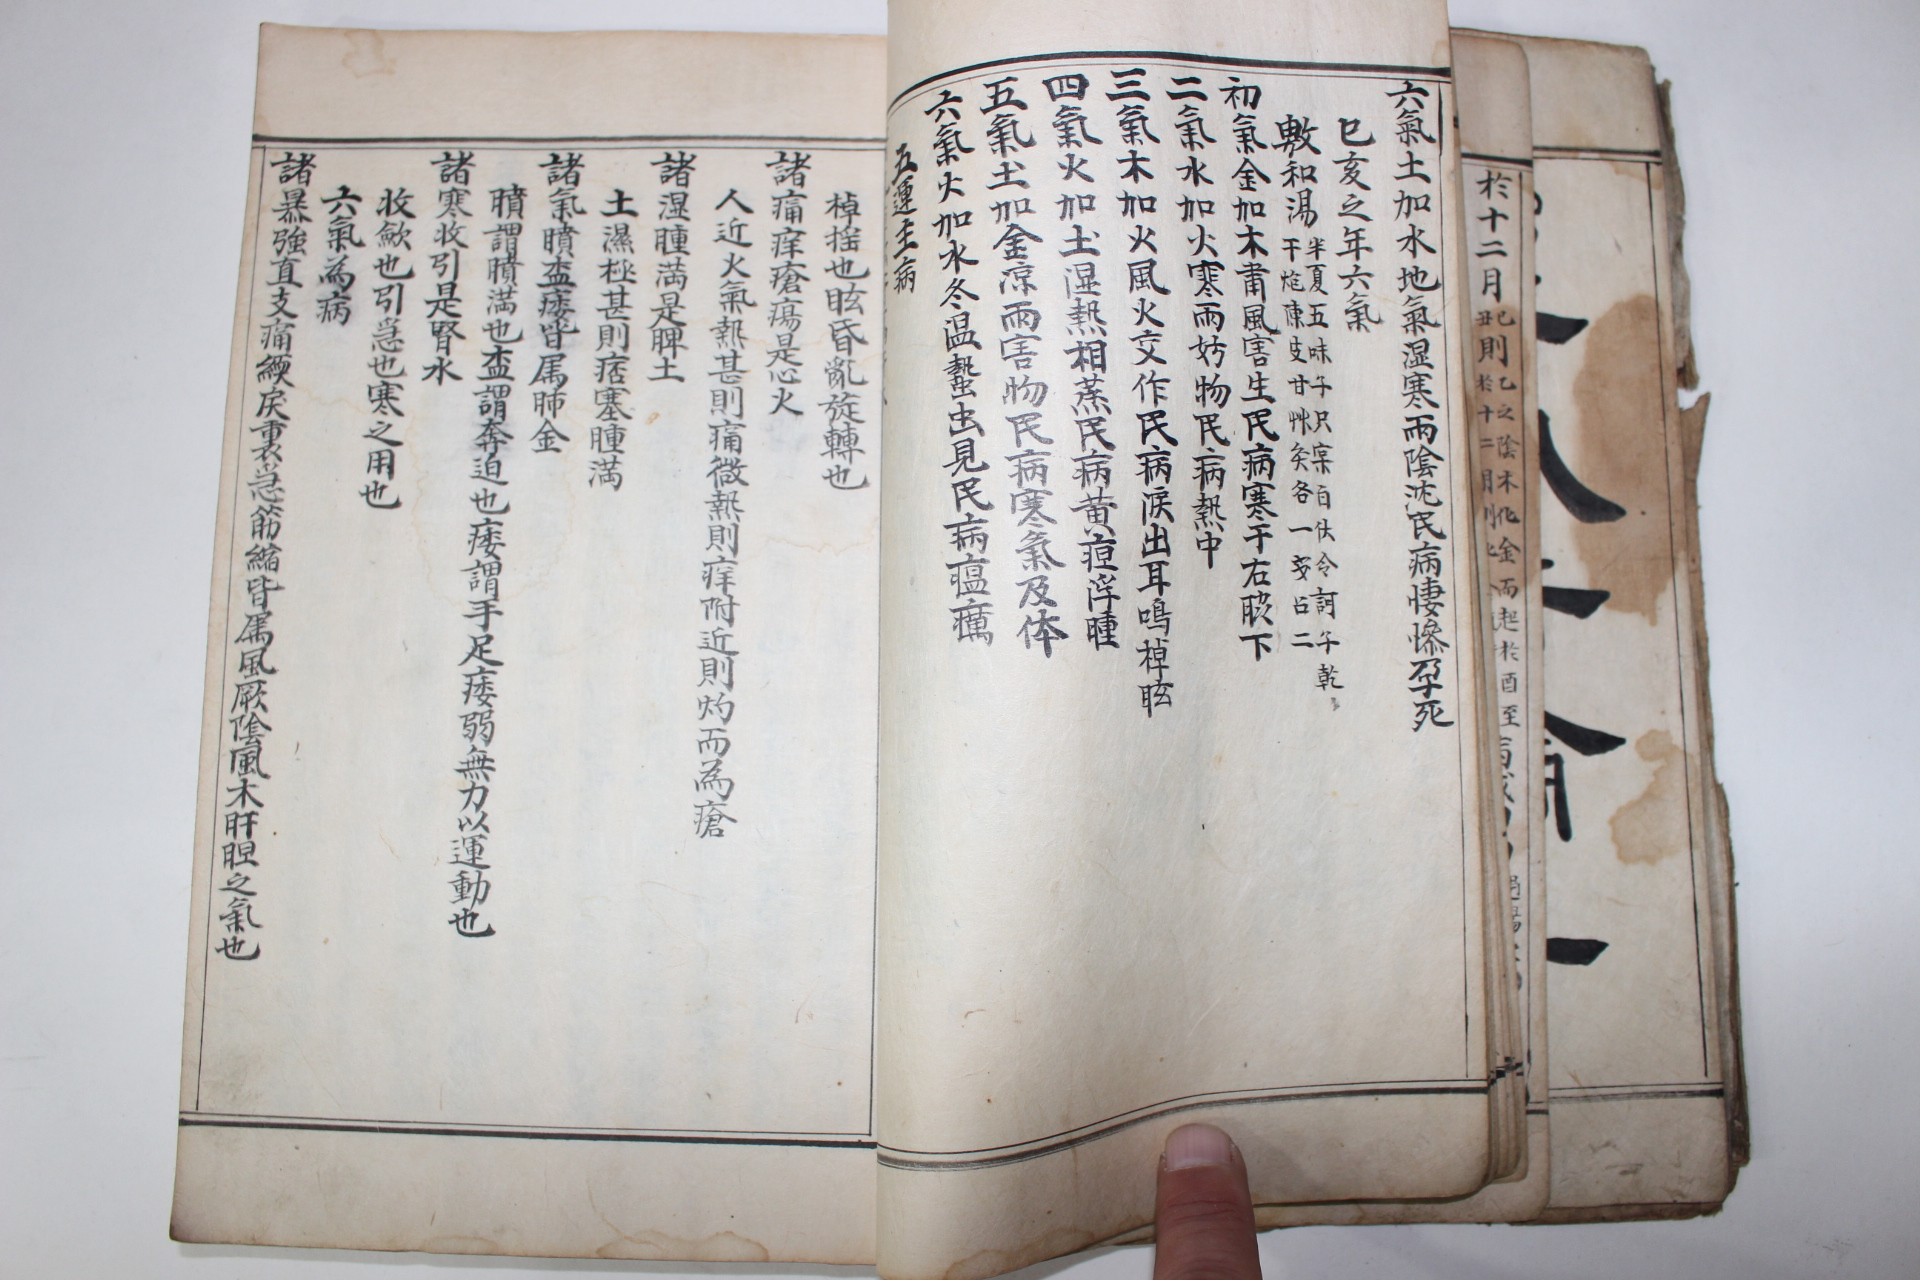 於十二月
六氣土加水地氣湿寒雨陰沈民病悽慘孕死
巳亥之年六氣
敷和湯
半夏五味子只宲百伏令訶子乾
干炮陳皮甘艸灸各一戔占二
初氣金加木肅風害生民病寒于右脇下
二氣水加火寒雨妨物民病熱中
三氣木加火風火交作民病淚出耳鳴掉眩
四氣火加土湿熱相蒸民病黃疸浮腫
五氣土加金凉雨害物民病寒氣及体
六氣火加水冬温蟄虫見民病瘟癘
五運主病
掉搖也眩昏亂旋轉也
諸痛痒瘡瘍是心火
人近火氣熱甚則痛微熱則痒附近則灼而為瘡
諸湿腫満是脾土
土濕極甚則痞塞腫満
諸氣膹盃痿皆属肺金
膹謂膹満也盃謂奔迫也痿謂手足痿弱無力以運動也
諸寒收引是腎水
收歛也引急也寒之用也
六氣為病
諸暴強直支痛緛戾裏急筋縮皆属風厥陰風木肝胆之氣也